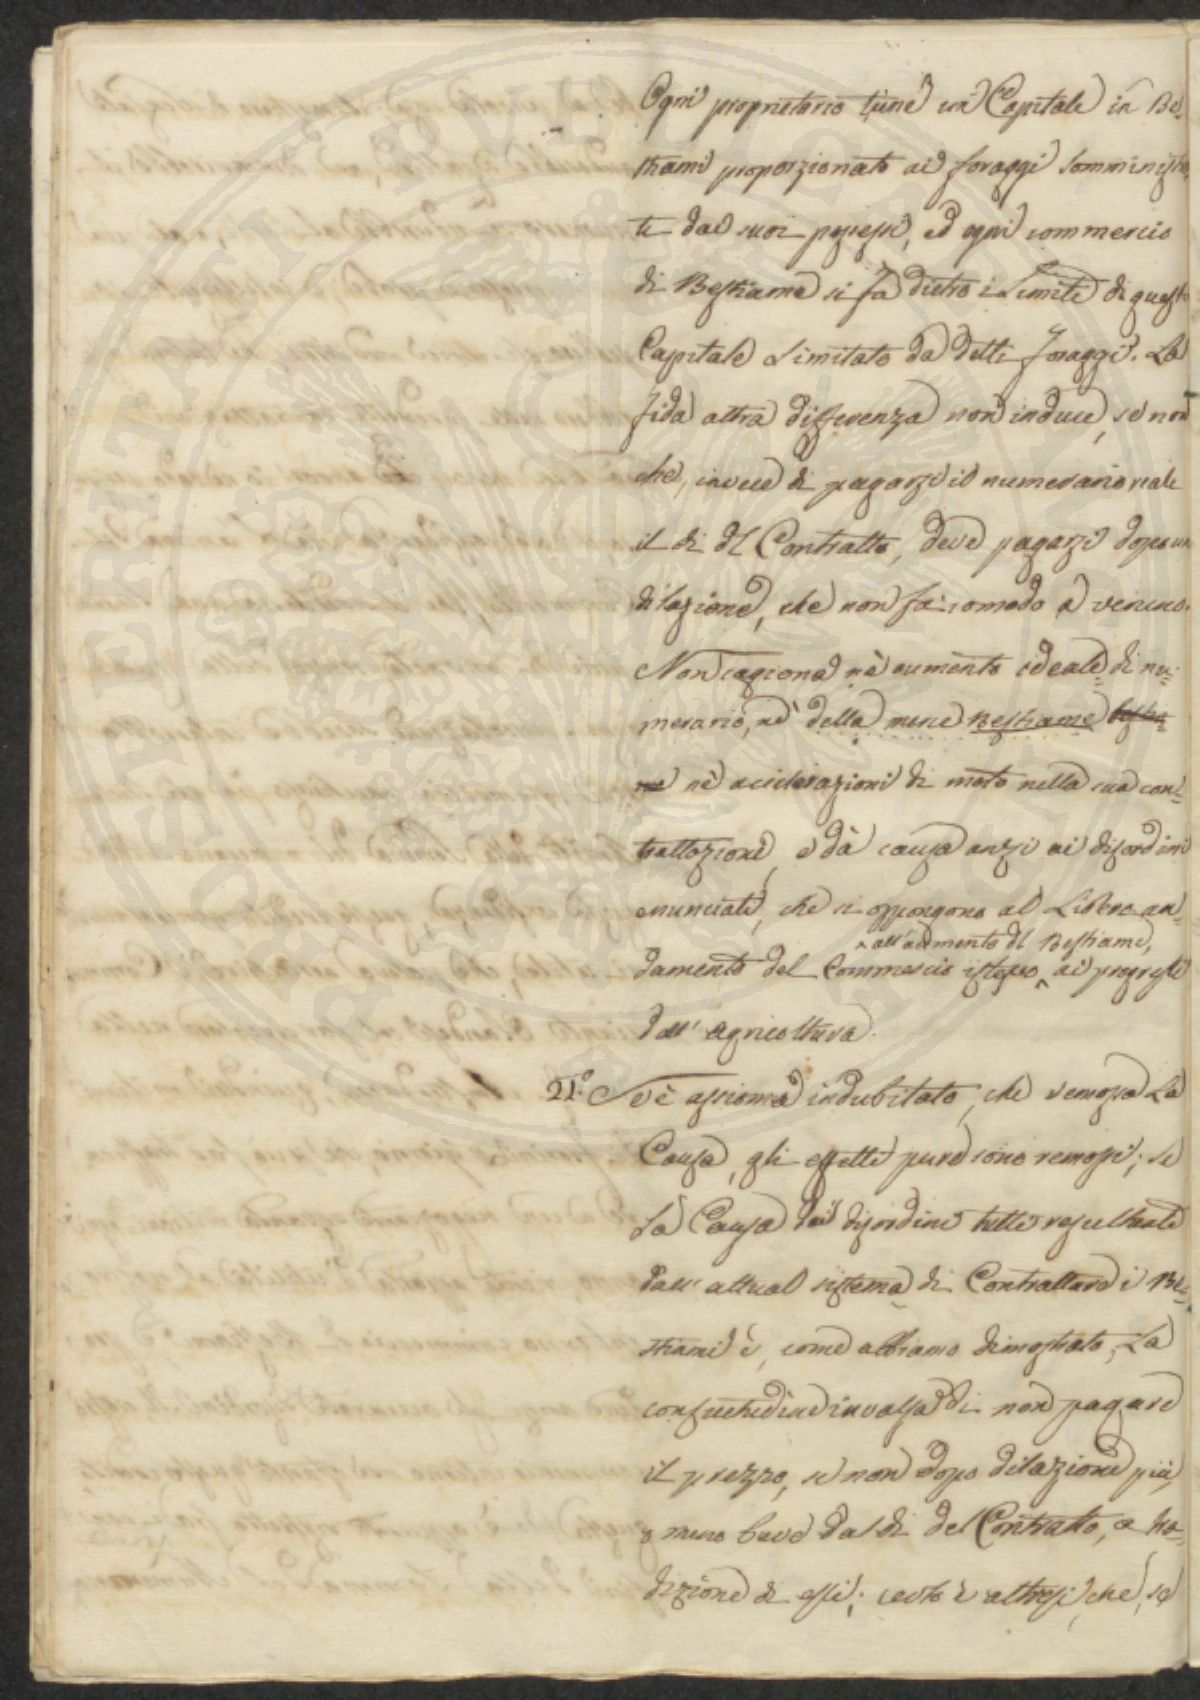 Ogni proprietario tiene un Capitale in Be-
stiami proporzionato ai foraggi somministra-
ti dai suoi possessi, ed ogni commercio
di Bestiame si fa dietro i Limiti di questo
Capitale Limitato da detti foraggi. La
fida altra differenza non induce, se non
che, invece di pagarsi il numerario reale
il dì del Contratto, deve pagarsi dopo una
dilazione, che non fa comodo a veruno.
Non cagiona nè aumento ideale di nu-
merario, nè della merce Bestiame bestia-
me nè accelerazioni di moto nella sua con-
trattazione, e dà causa anzi ai disordini
enunciati, che si oppongono al Libero an-
all'aumento del Bestiame,
damento del Commercio istesso ai progressi
dell'agricoltura.
21.° Se è assioma indubitato, che remossa La
Causa, gli effetti pure sono remossi; se
La Causa dei disordini tutti resultanti
dall'attual sistema di Contrattare i Be-
stiami è, come abbiamo dimostrato, La
consuetudine invalsa di non pagare
il prezzo, se non dopo dilazione più,
o meno breve dal dì del Contratto, a tra-
dizione di essi; certo è altresì, che, se